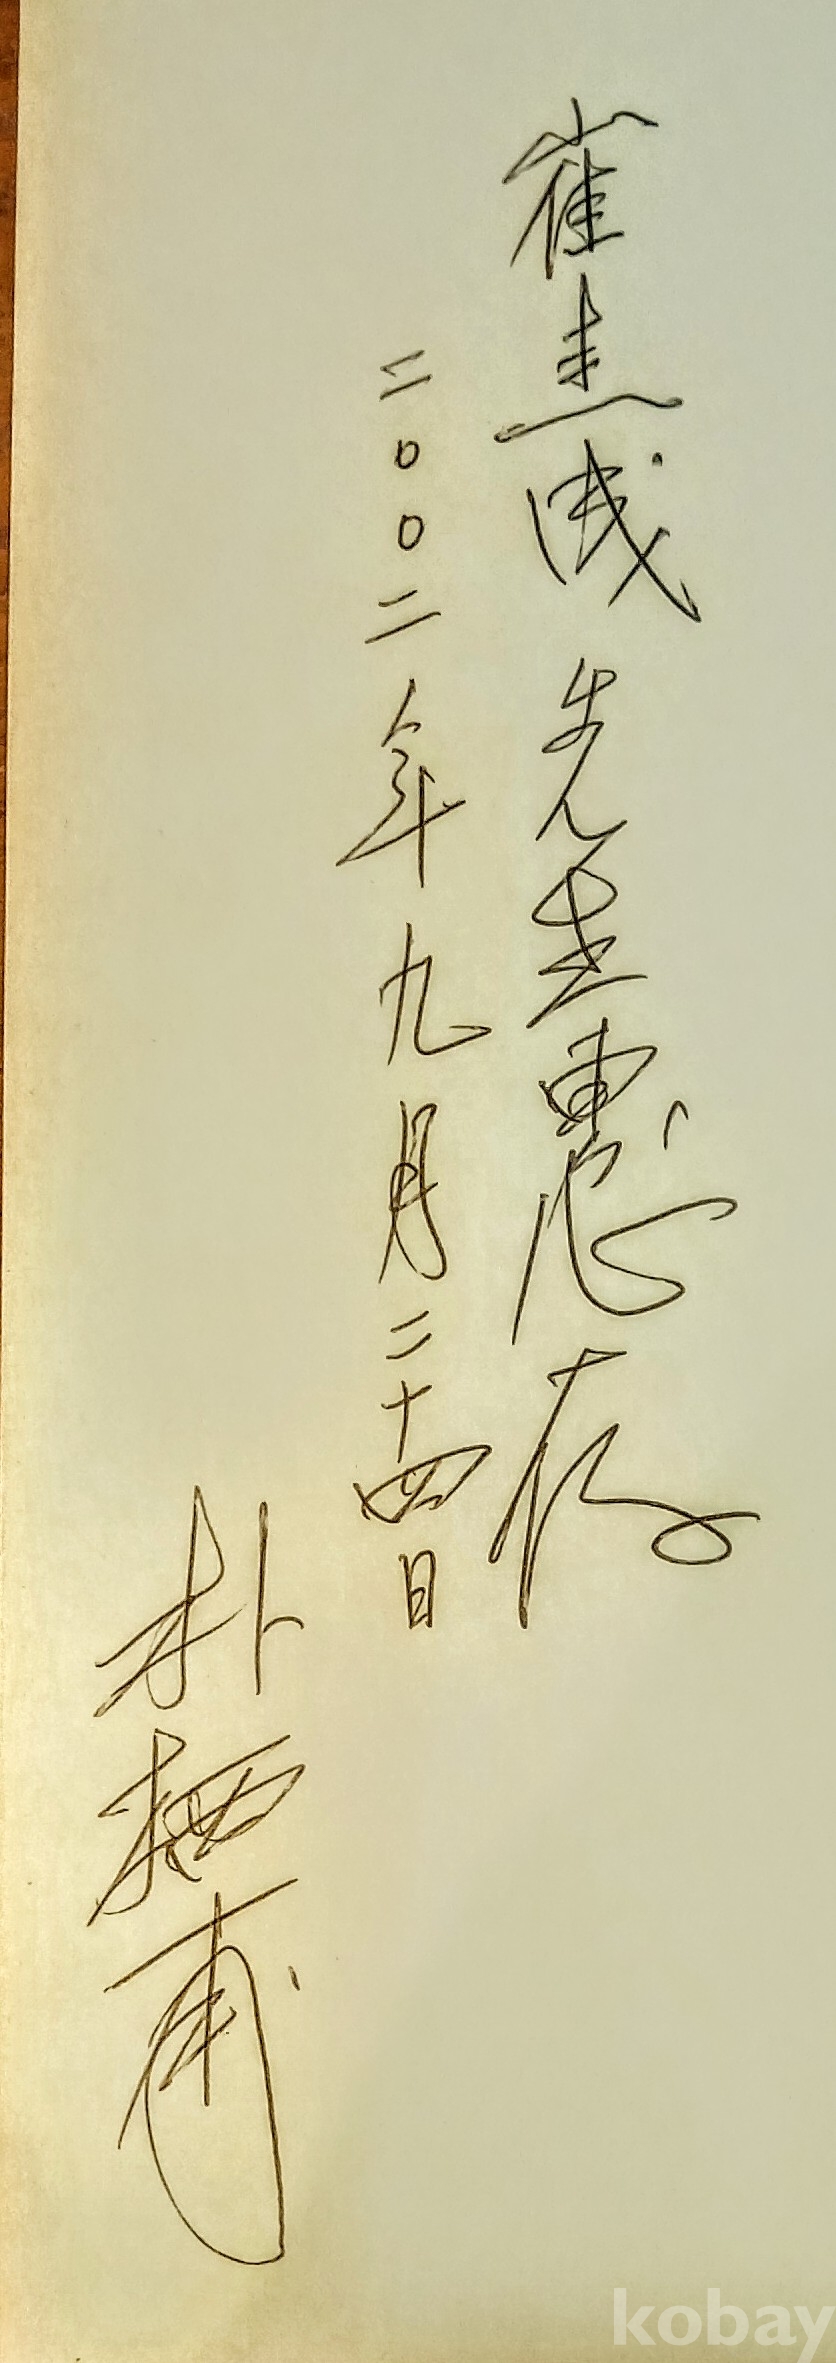 崔圭成先生惠存
二〇〇二年九月二十四日
朴栖甫
kobay